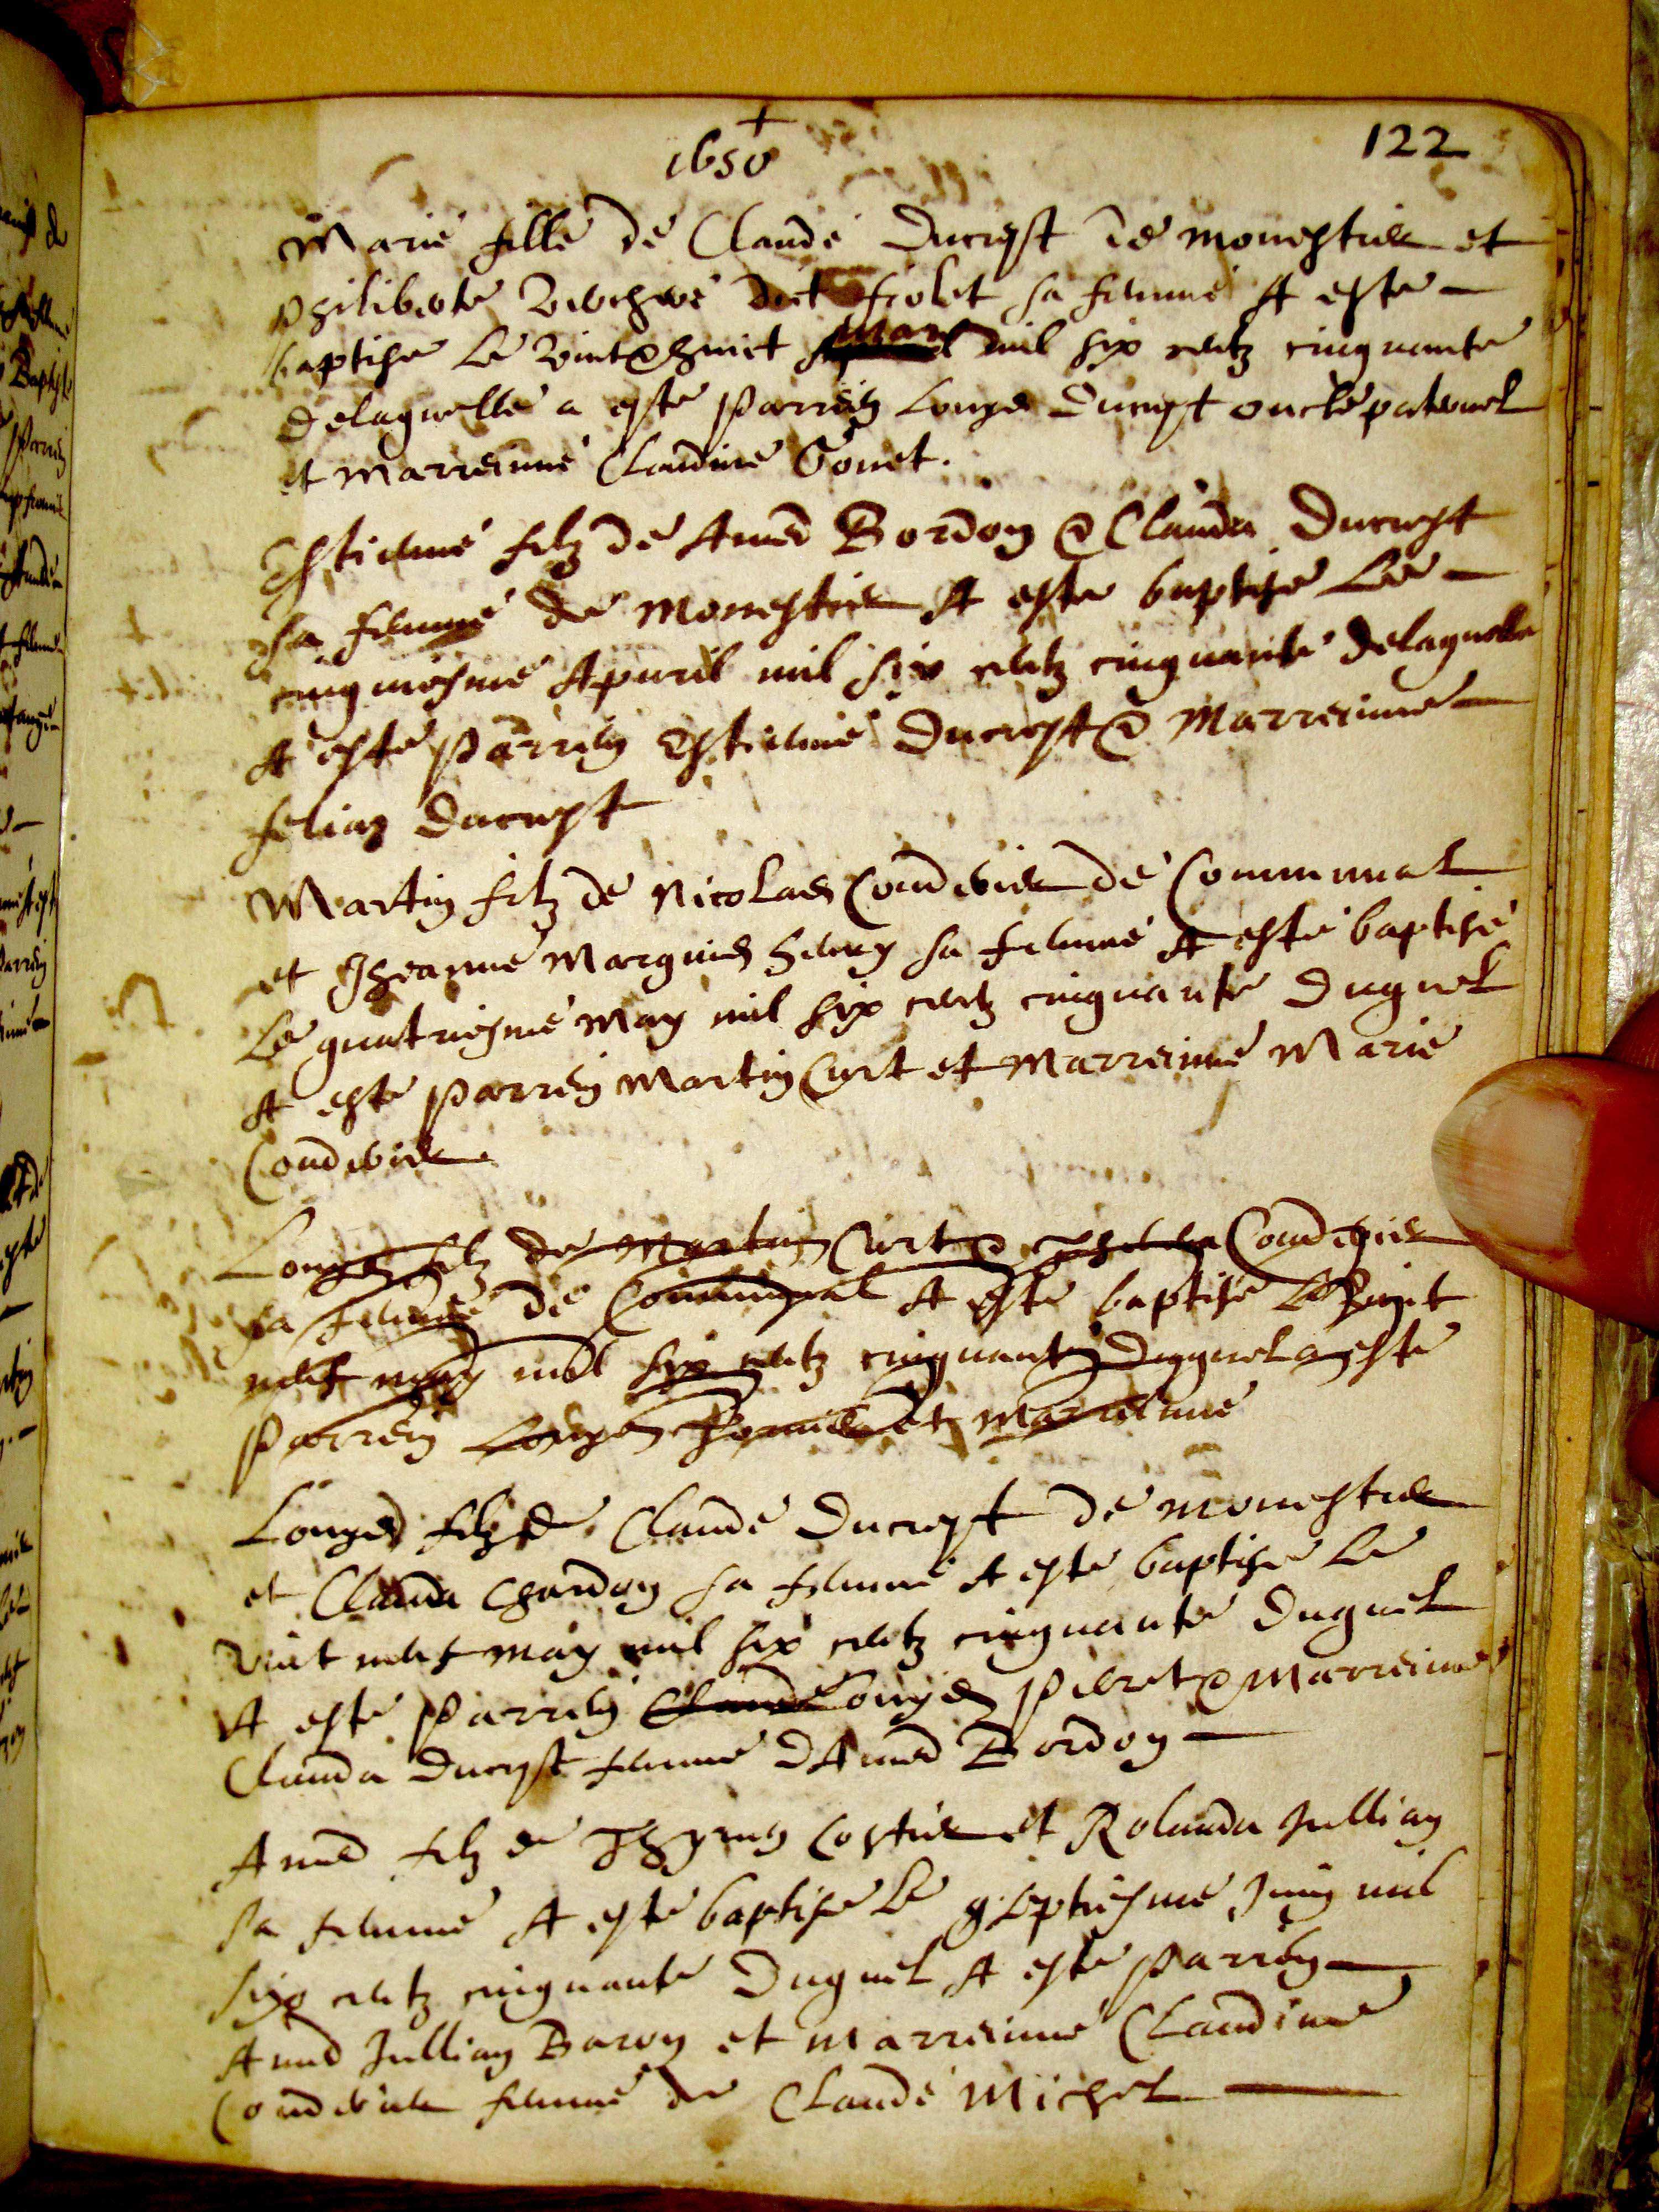 1650
122
Marie fille de Claude Ducrest de monestier et
philiberte dict frolet sa femme A este
baptise Le vint & huict Mars mil six centz cinquante
delaquelle a este Parrein Louys Ducrest oncle paternel
et marreinne Claudine Gonet.
Estienne filz de Amed Bordon & Clauda Ducrest
sa femme de monestier A este baptise Le
cinquiesme Apvril mil six centz cinquante delaquelle
A este Parrein Estienne Ducrest & Marreinne
Ducrest
Martin filz de Nicolas Condevin de Communal
et Jheanne sa femme A este baptise
Le quatriesme May mil six centz cinquante Duquel
A este Parrein Martin Curt et Marreinne Marie
Condevin
Louys filz de Martin Curt & Condevin
sa femme de Communal A este baptise Le vint
neuf may mil six centz cinquante Duquel a este
Parrein Louys et Marreinne
Louys filz de Claude Ducrest de monestier
et Clauda Chardon sa femme A este baptise Le
vint neuf May mil six centz cinquante Duquel
A este Parrein Claude Louys & Marreinne
Clauda Ducrest femme d'Amed Bordon
Amed filz de Costier et Rolanda Jullian
sa femme A este baptise Le septiesme Juin mil
six centz cinquante Duquel A este Parrein
Amed Jullian Baron et marreinne Claudine
Condevin femme de Claude Michel